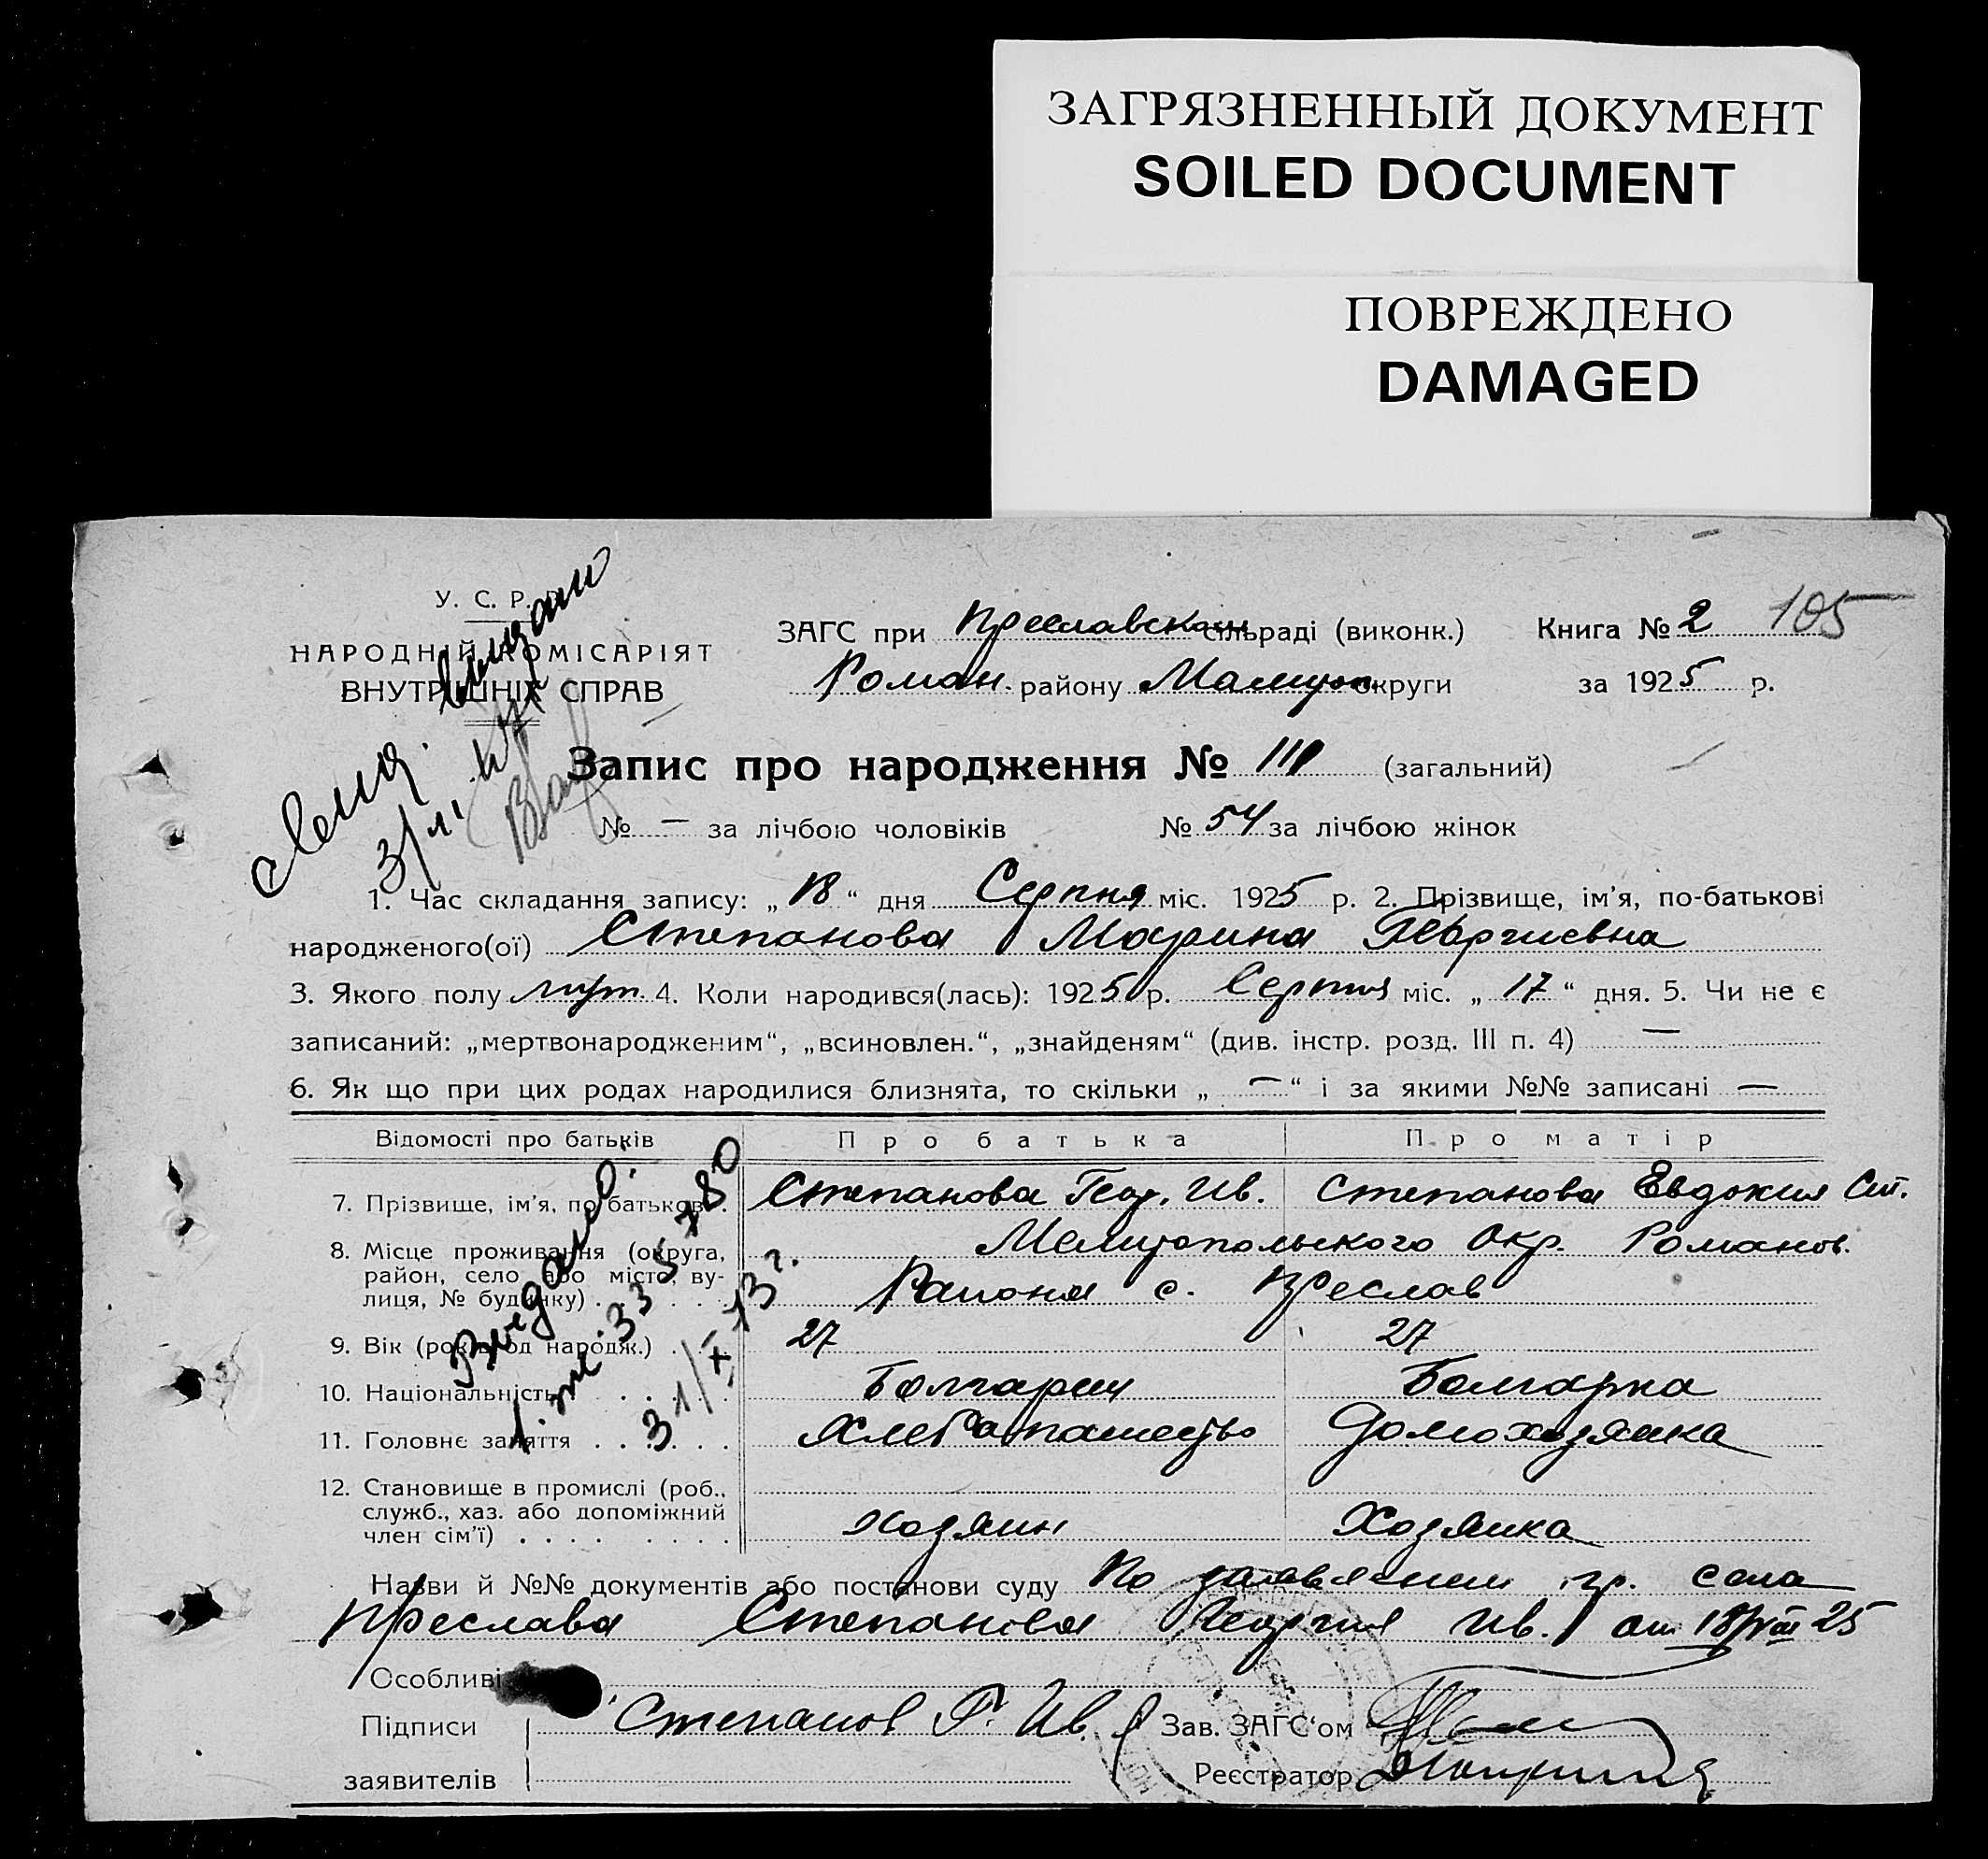 ЗАГРЯЗНЕННЫЙ ДОКУМЕНТ
SOILED DOCUMENT
ПОВРЕЖДЕНО
DAMAGED
У. С. Р. Р.
НАРОДНІЙ КОМІСАРІЯТ
ВНУТРІШНІХ СПРАВ
ЗАГС при Преславском сільраді (виконк.) Книга № 2 105
Роман. району Мелитоп. округи за 1925 р.
Запис про народження № 111 (загальний)
№ — за лічбою чоловіків № 54 за лічбою жінок
1. Час складання запису: „18“ дня Серпня міс. 1925 р. 2. Прізвище, ім'я, по-батькові
народженого(ої) Степанова Марина Георгиевна
3. Якого полу 4. Коли народився(лась): 1925 р. Серпня міс. „17“ дня. 5. Чи не є
записаний: „мертвонародженим“, „всиновлен.“, „знайденям“ (див. інстр. розд. III п. 4) —
6. Як що при цих родах народилися близнята, то скільки „—“ і за якими №№ записані —
Відомості про батьків Про батька Про матір
7. Прізвище, ім'я, по батькові. Степанова Геор. Ив. Степанова Евдокия Ст.
8. Місце проживання (округа, район, село або місто, вулиця, № будинку) Мелитопольского Окр. Романов.
Района с. Преслав
9. Вік (років од народж.) 27 27
10. Національність Болгарин Болгарка
11. Головне заняття Хлебопашество Домохозяйка
12. Становище в промислі (роб., служб., хаз. або допоміжний член сім'ї) Хозяин Хозяйка
Назви й №№ документів або постанови суду По заявлению гр. села
Преслава Степанова Георгия Ив. от 18/VIII 25
Особливі
Підписи Степанов Г. Ив. Зав. ЗАГС'ом
заявителів Реєстратор
Выдано
31/X 73 г.